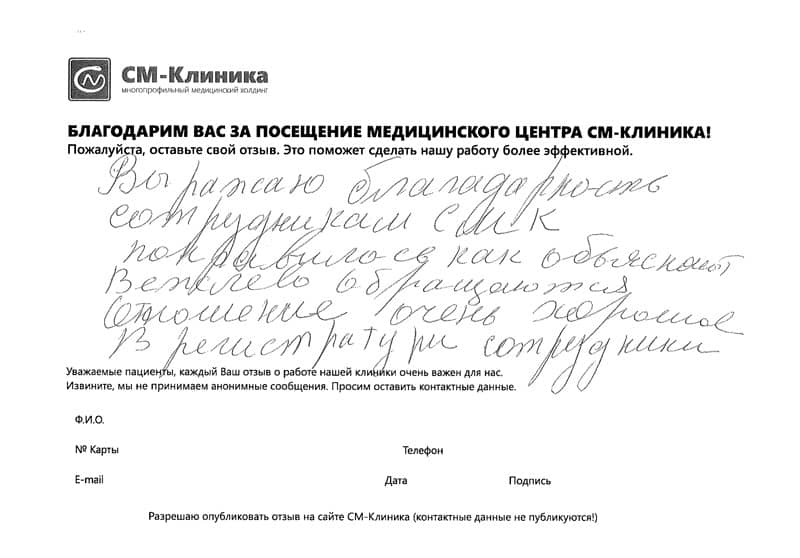 СМ-Клиника
многопрофильный медицинский холдинг
БЛАГОДАРИМ ВАС ЗА ПОСЕЩЕНИЕ МЕДИЦИНСКОГО ЦЕНТРА СМ-КЛИНИКА!
Пожалуйста, оставьте свой отзыв. Это поможет сделать нашу работу более эффективной.
Выражаю благодарность
сотрудникам СМК
понравилось как объясняют
Вежлево обращаются
Отношение очень хорошое
В регистратури сотрудники
Уважаемые пациенты, каждый Ваш отзыв о работе нашей клиники очень важен для нас.
Извините, мы не принимаем анонимные сообщения. Просим оставить контактные данные.
Ф.И.О.
№ Карты Телефон
E-mail Дата Подпись
Разрешаю опубликовать отзыв на сайте СМ-Клиника (контактные данные не публикуются!)